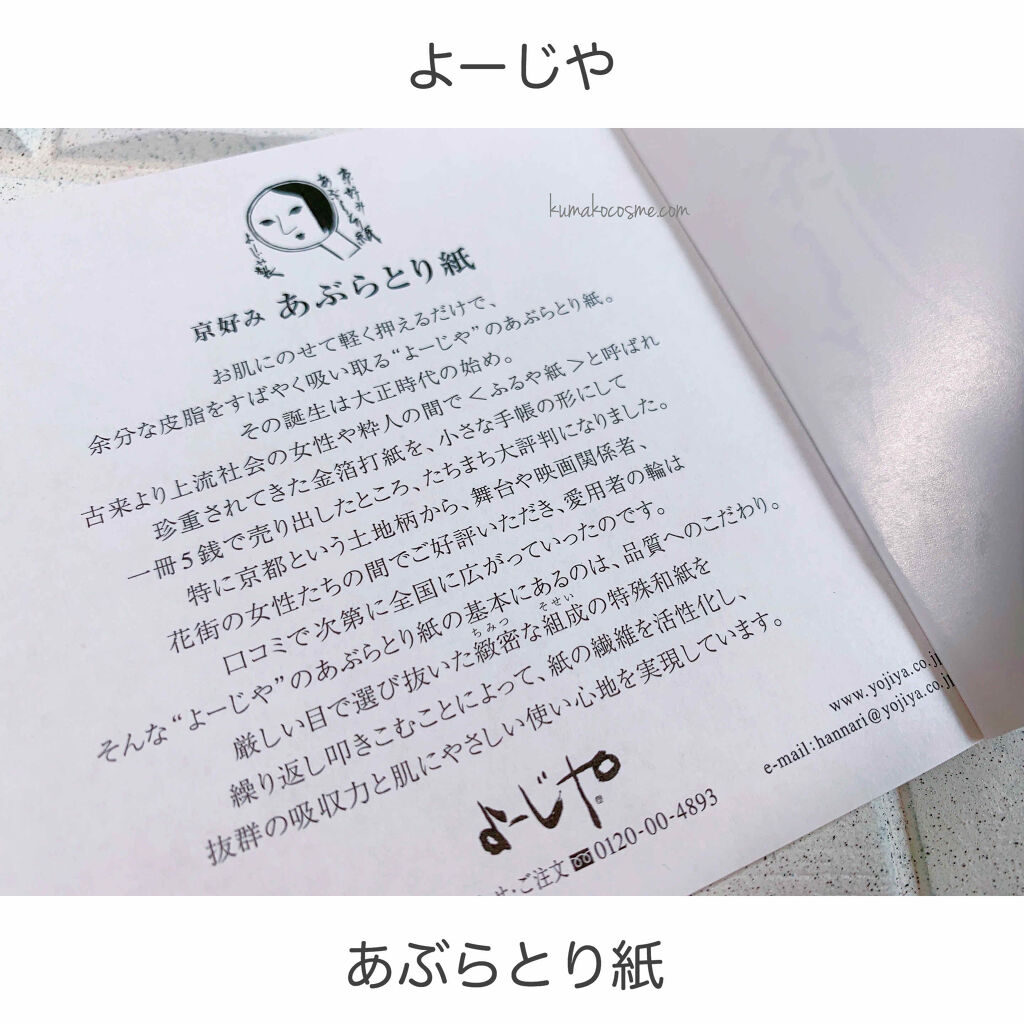 よーじや
kumakocosme.com
京好み
あぶらとり紙
よーじや製
京好み あぶらとり紙
お肌にのせて軽く押えるだけで、
余分な皮脂をすばやく吸い取る“よーじや”のあぶらとり紙。
その誕生は大正時代の始め。
古来より上流社会の女性や粋人の間で＜ふるや紙＞と呼ばれ
珍重されてきた金箔打紙を、小さな手帳の形にして
一冊5銭で売り出したところ、たちまち大評判になりました。
特に京都という土地柄から、舞台や映画関係者、
花街の女性たちの間でご好評いただき、愛用者の輪は
口コミで次第に全国に広がっていったのです。
そんな“よーじや”のあぶらとり紙の基本にあるのは、品質へのこだわり。
ちみつ そせい
厳しい目で選び抜いた緻密な組成の特殊和紙を
繰り返し叩きこむことによって、紙の繊維を活性化し、
抜群の吸収力と肌にやさしい使い心地を実現しています。
www.yojiya.co.jp
e-mail:hannari@yojiya.co.jp
よーじや®
せ・ご注文 0120-00-4893
あぶらとり紙